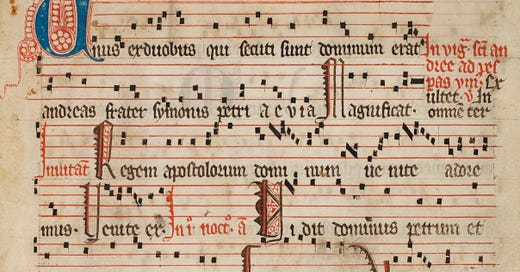 Unus erduobus qui secuti sunt dominum erat
In vig. sci an
dree ad ves
pas ym. Ex
ultet. V In
omnē ter
andreas frater symonis petri a e v i a Magnificat.
Inuitat Regem apostolorum domi num ue nite adore
mus. Uenite ex. In i° noct° ā Ui dit dominus petrum et